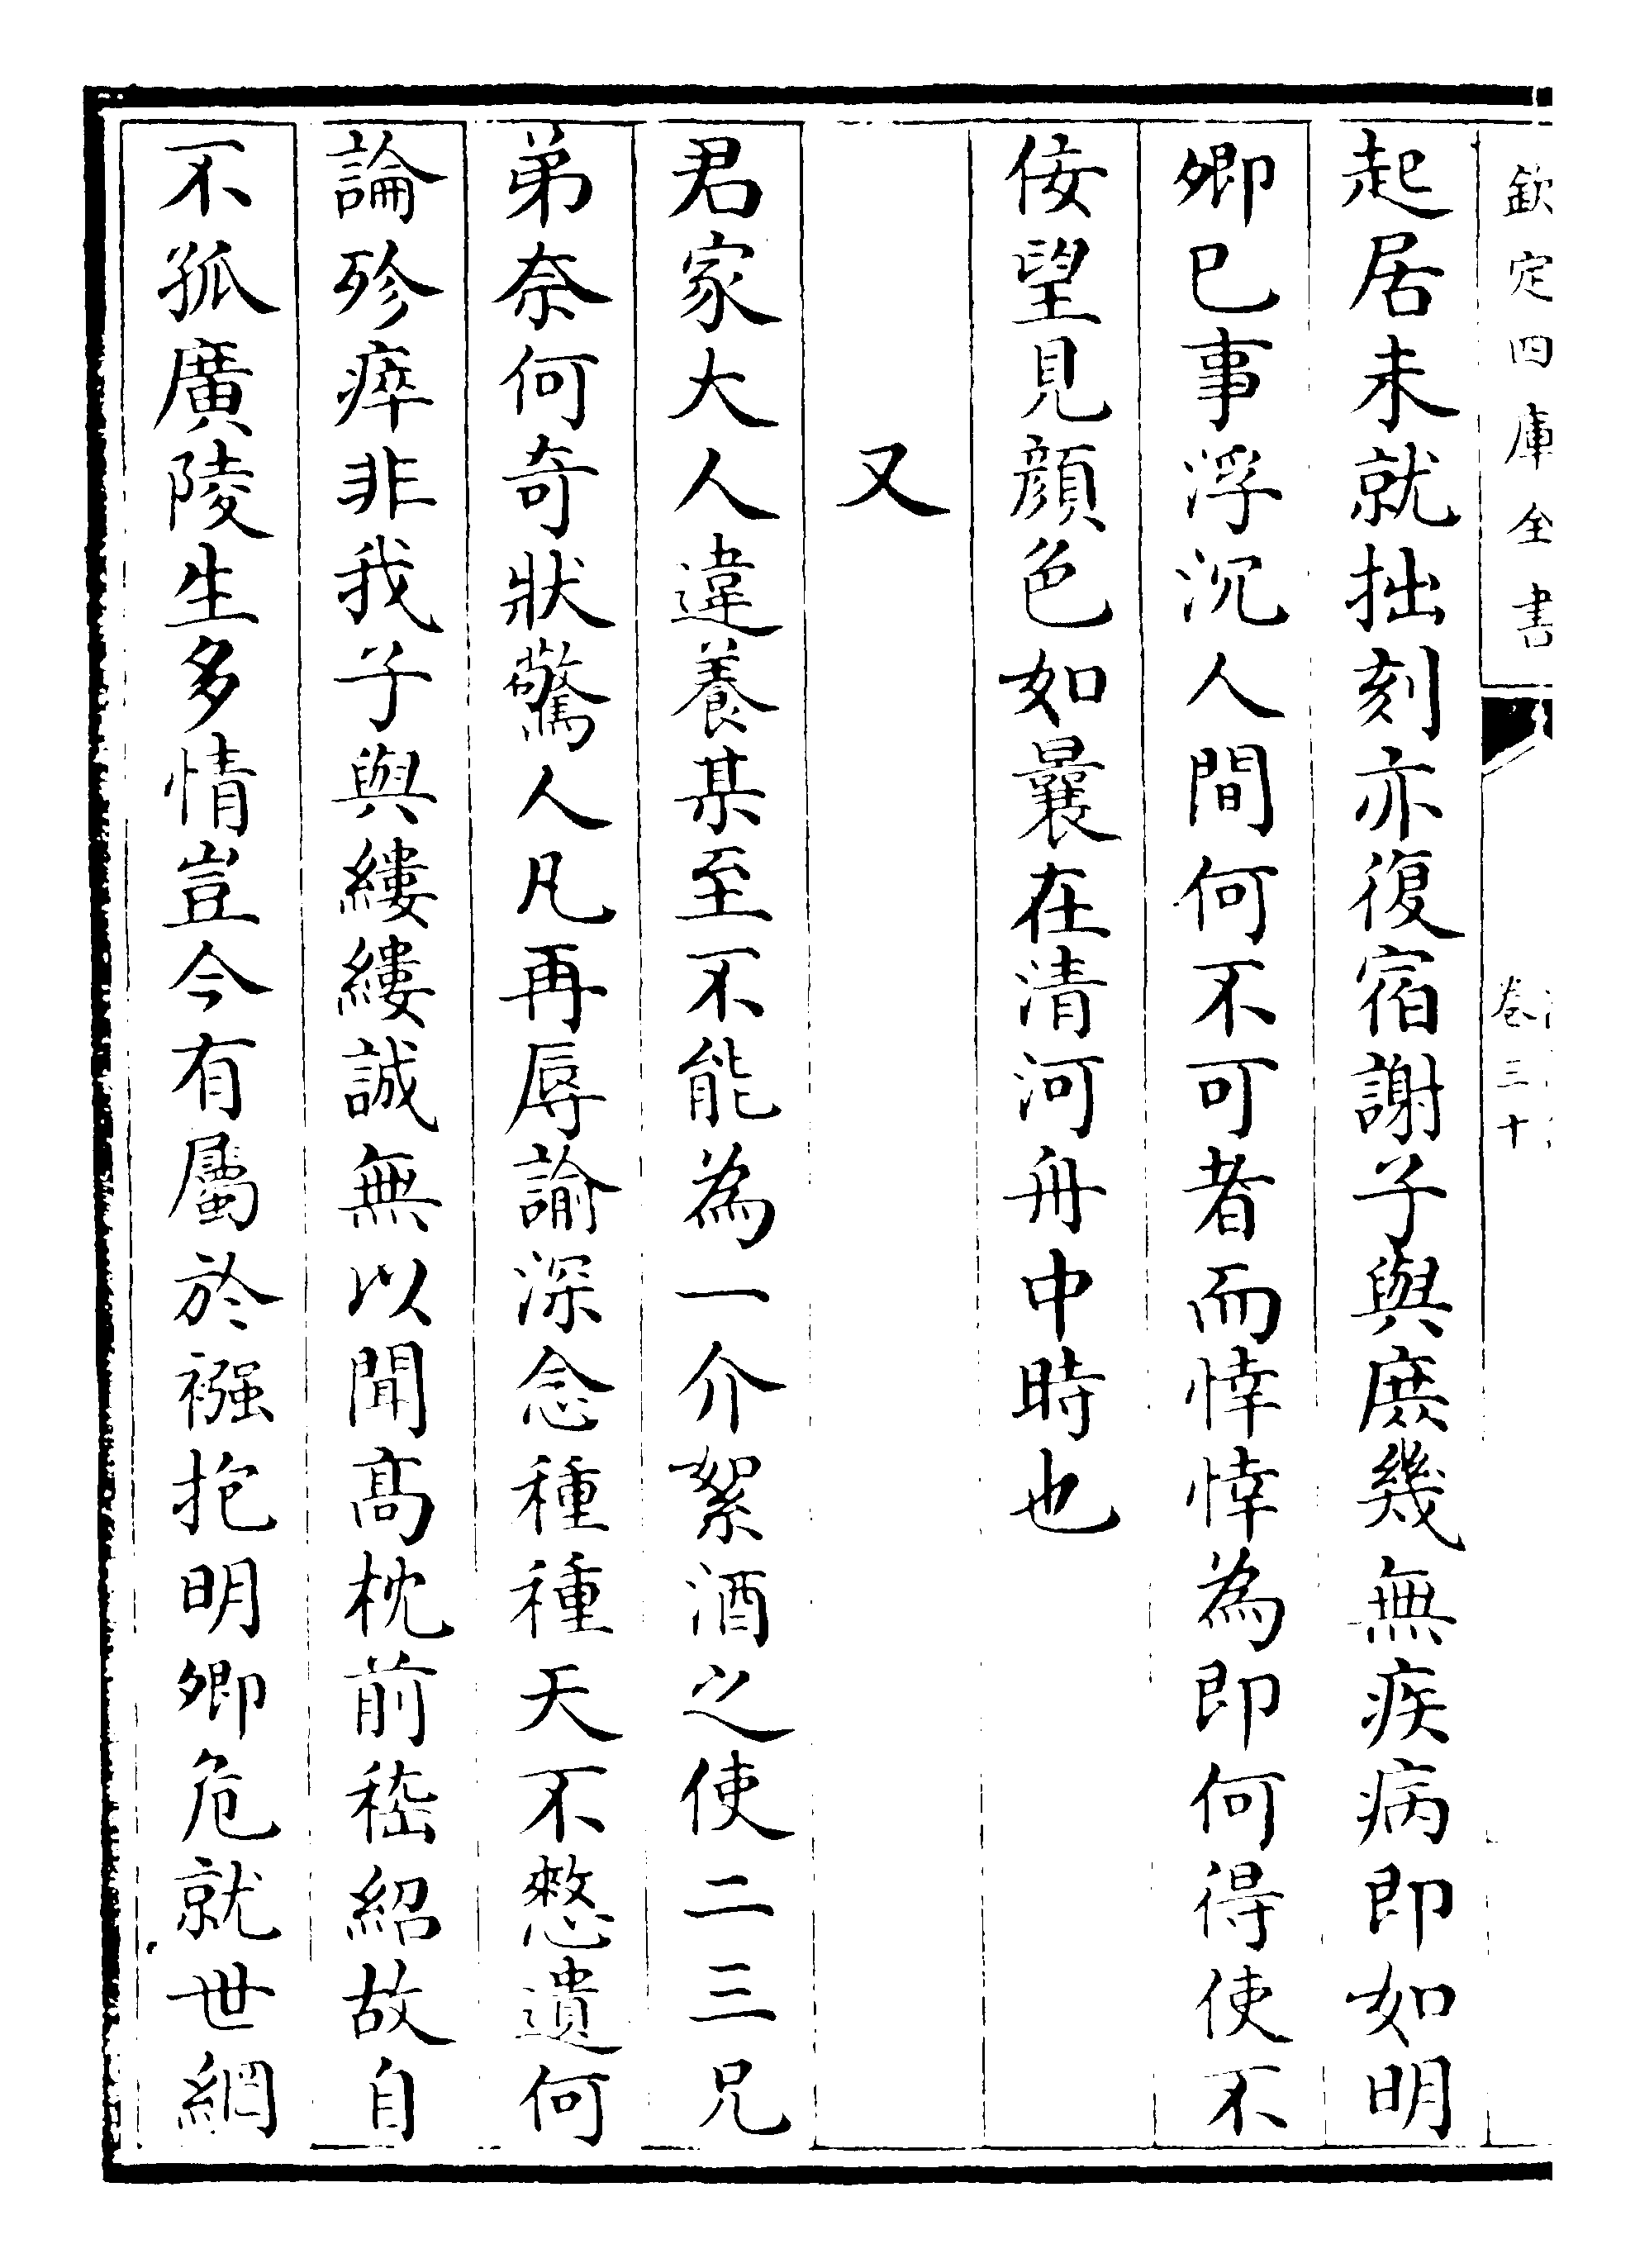 欽定四庫全書
卷三十
起居未就拙刻亦復宿謝子與庶幾無疾病即如明
卿已事浮沉人間何不可者而悻悻為即何得使不
佞望見顔色如曩在清河舟中時也
又
君家大人違養某至不能為一介絮酒之使二三兄
弟奈何奇狀驚人凡再辱諭深念種種天不憖遺何
論殄瘁非我子與縷縷誠無以聞髙枕前嵇紹故自
不孤廣陵生多情豈今有屬於襁抱明卿危就世網